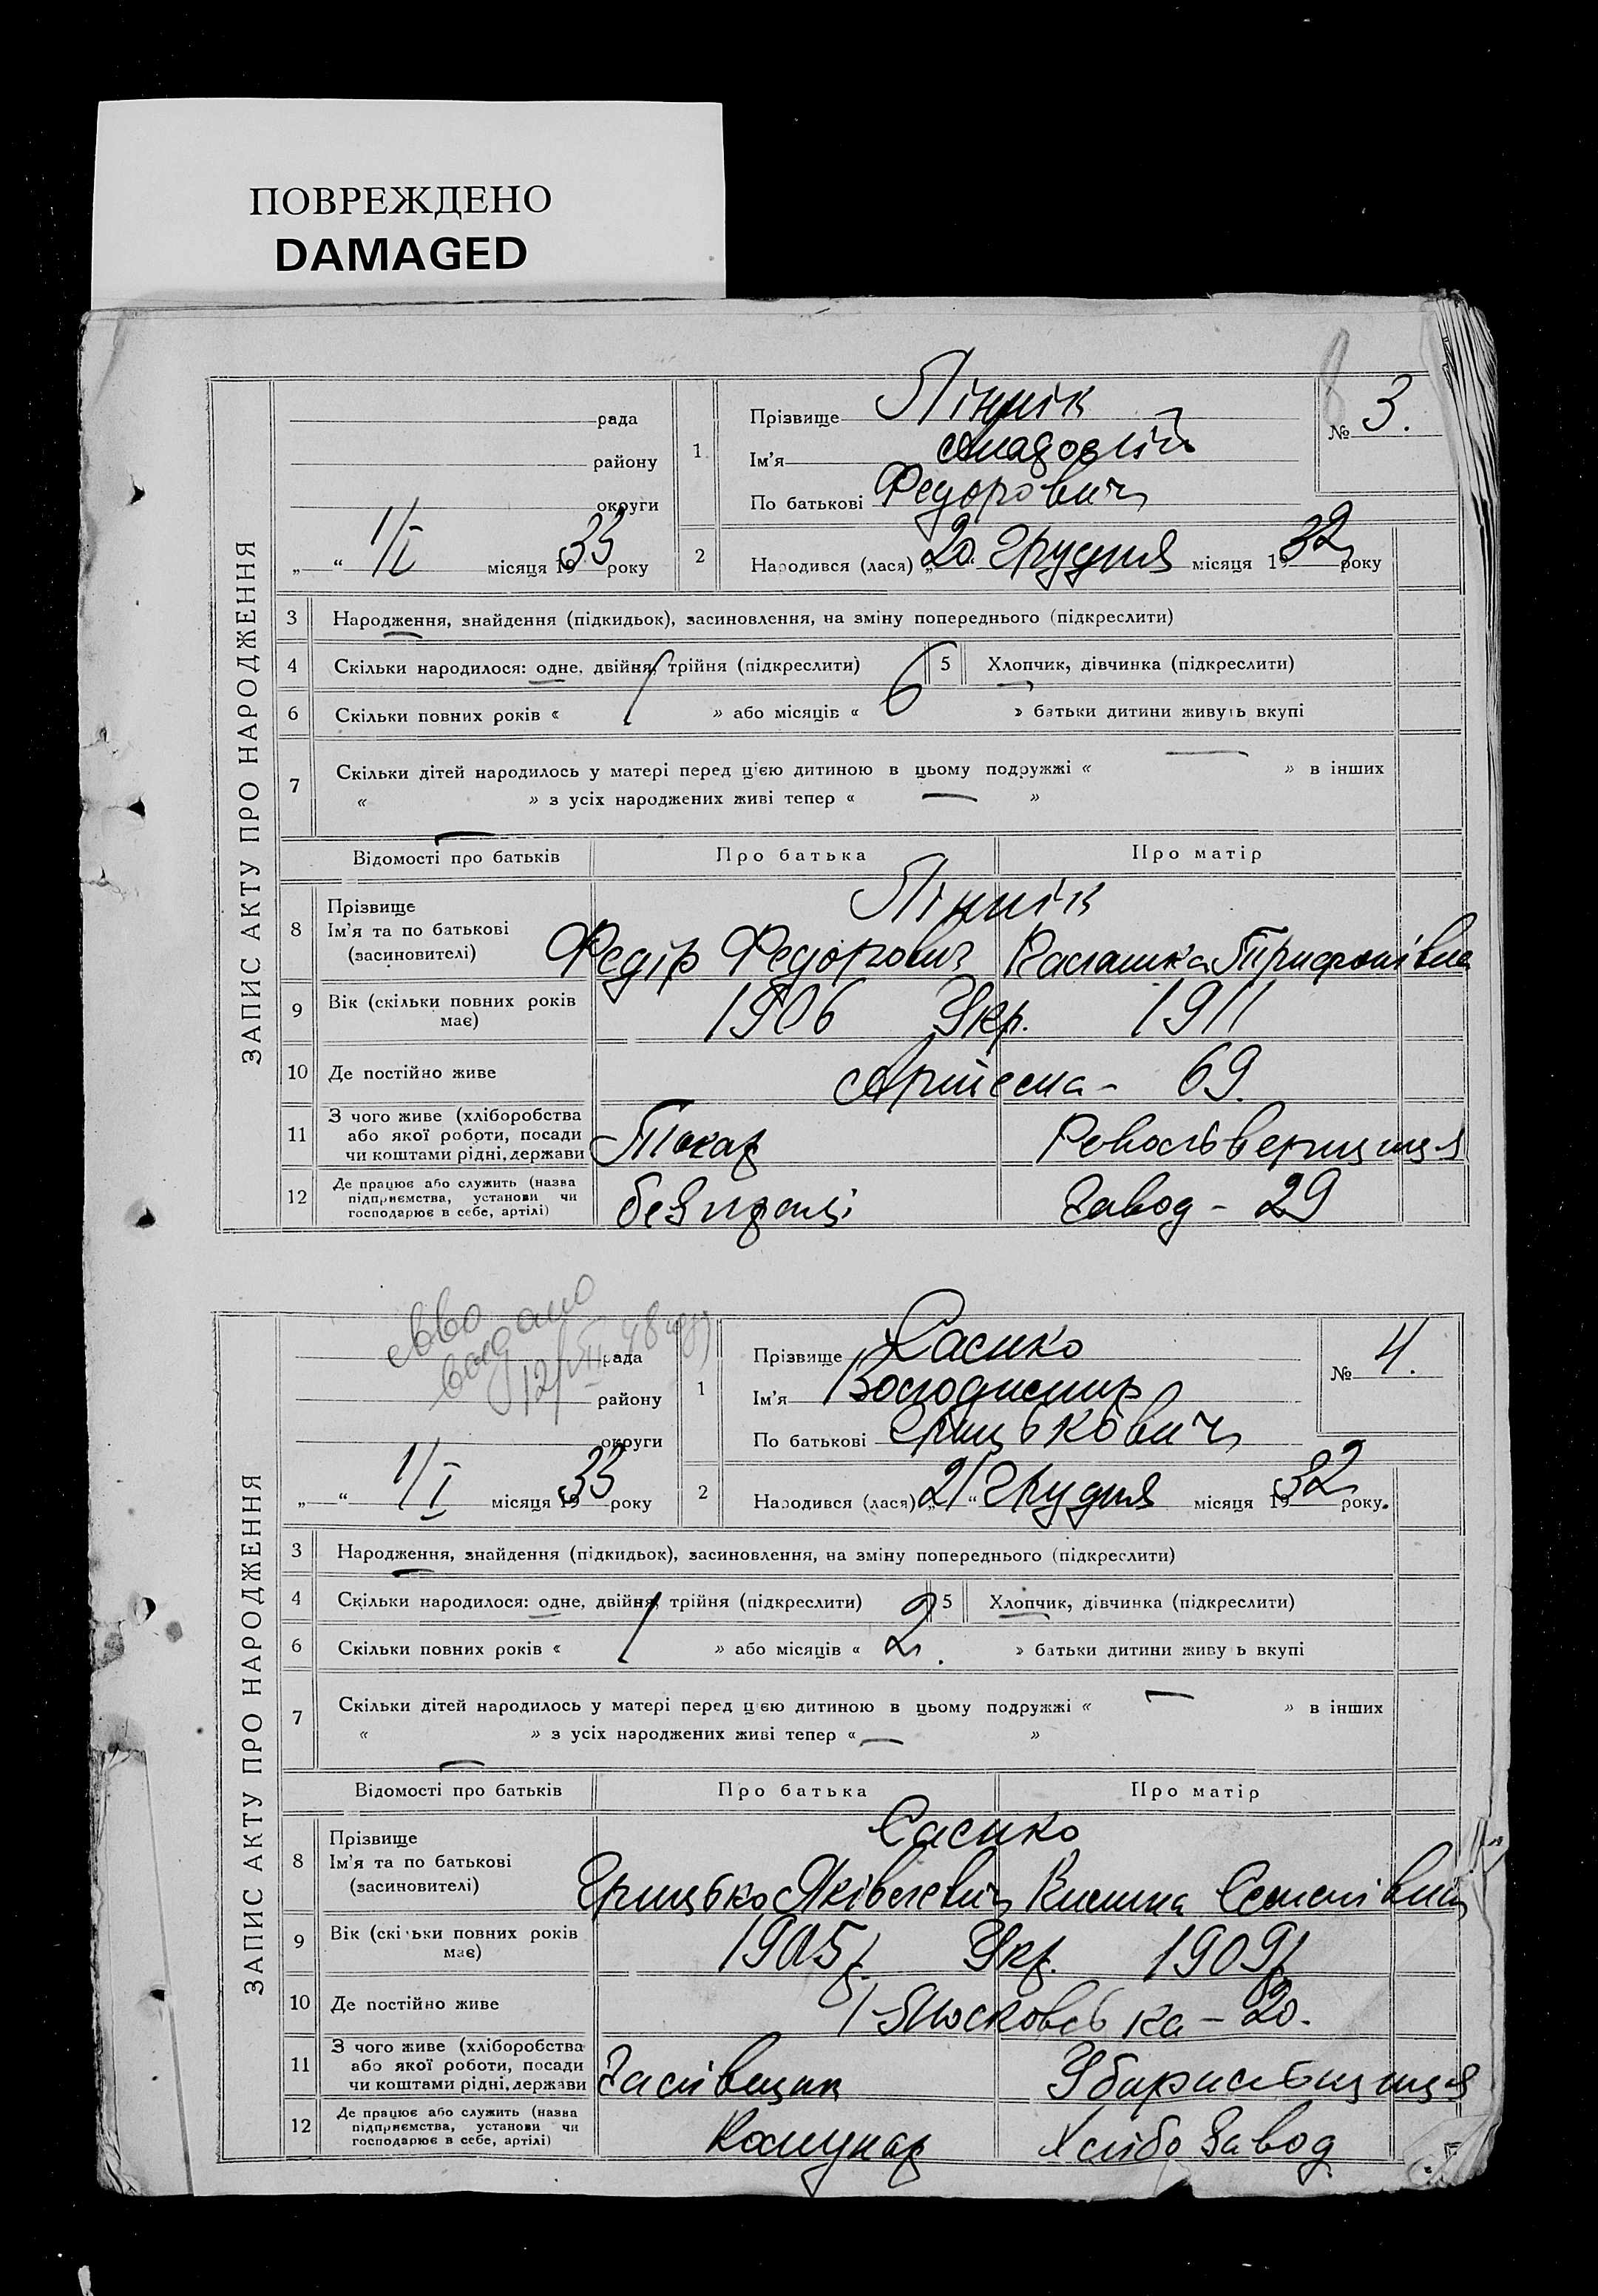 ПОВРЕЖДЕНО
DAMAGED
ЗАПИС АКТУ ПРО НАРОДЖЕННЯ
№ 3.
рада
району
округи
„ “ 1/I місяця 1933 року
1 Прізвище Пінчік
Ім'я
По батькові Федорович
2 Народився (лася) „20 Грудня місяця 1932 року
3 Народження, знайдення (підкидьок), засиновлення, на зміну попереднього (підкреслити)
4 Скільки народилося: одне, двійня, трійня (підкреслити) 5 Хлопчик, дівчинка (підкреслити)
6 Скільки повних років « 1 » або місяців « 6 » батьки дитини живуть вкупі
7 Скільки дітей народилось у матері перед цією дитиною в цьому подружжі « — » в інших
« » з усіх народжених живі тепер « — »
Відомості про батьків Про батька Про матір
8 Прізвище Пінчік
Ім'я та по батькові Федір Федорович Трифонівна
(засиновителі)
9 Вік (скільки повних років має) 1906 Укр. 1911
10 Де постійно живе Артема - 69.
11 З чого живе (хліборобства
або якої роботи, посади
чи коштами рідні, держави Токар Револьверниця
12 Де працює або служить (назва
підприємства, установи чи
господарює в себе, артілі) безпраці Завод - 29
ЗАПИС АКТУ ПРО НАРОДЖЕННЯ
№ 4.
рада
району
округи
„ “ 1/I місяця 1933 року
1 Прізвище Сасико
Ім'я Володимир
По батькові Грицькович
2 Народився (лася) „21“ Грудня місяця 1932 року.
3 Народження, знайдення (підкидьок), засиновлення, на зміну попереднього (підкреслити)
4 Скільки народилося: одне, двійня, трійня (підкреслити) 5 Хлопчик, дівчинка (підкреслити)
6 Скільки повних років « 1 » або місяців « 2. » батьки дитини живу ь вкупі
7 Скільки дітей народилось у матері перед цією дитиною в цьому подружжі « — » в інших
« » з усіх народжених живі тепер « — »
Відомості про батьків Про батька Про матір
8 Прізвище Сасико
Ім'я та по батькові Грицько Яківлевич Килина Семенівна
(засиновителі)
9 Вік (скі ьки повних років має) 1905р. Укр. 1909р
10 Де постійно живе 1-Московська - 20.
11 З чого живе (хліборобства
або якої роботи, посади
чи коштами рідні, держави Убиральниця
12 Де працює або служить (назва
підприємства, установи чи
господарює в себе, артілі) Комунар Хлібозавод